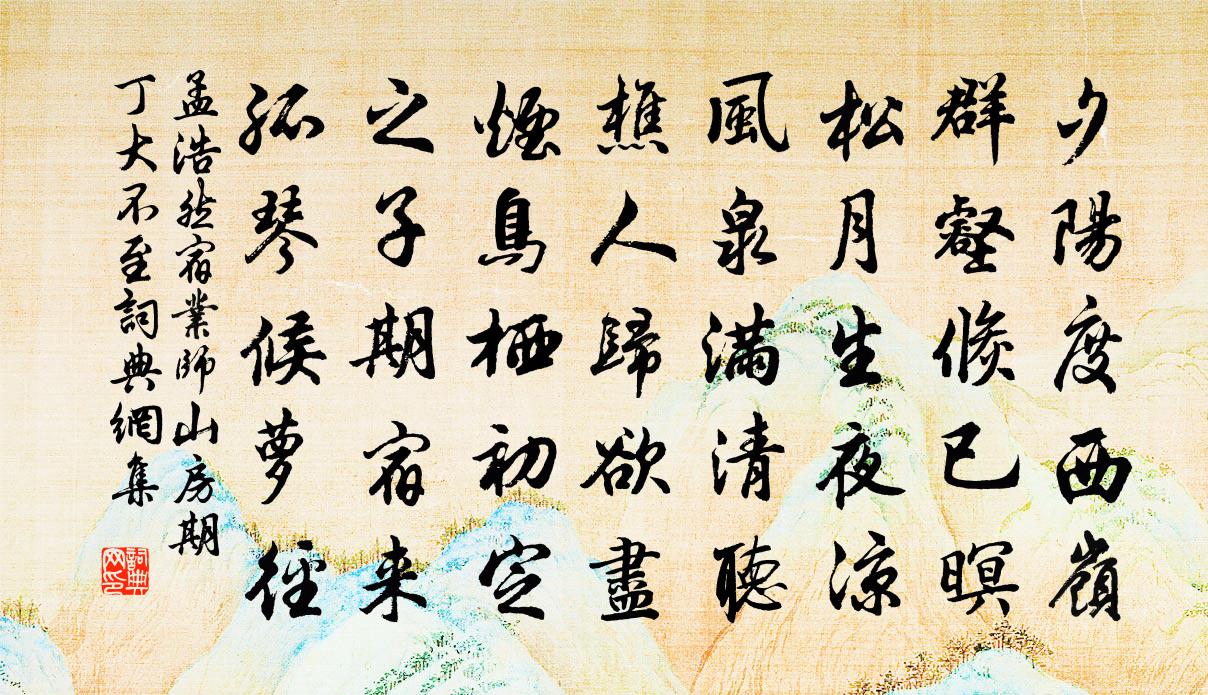 夕陽度西嶺
群壑倏已暝
松月生夜涼
風泉滿清聽
樵人歸欲盡
煙鳥栖初定
之子期宿来
孤琴候萝徑
孟浩然宿業師山房期
丁大不至詞典網集
詞典网印